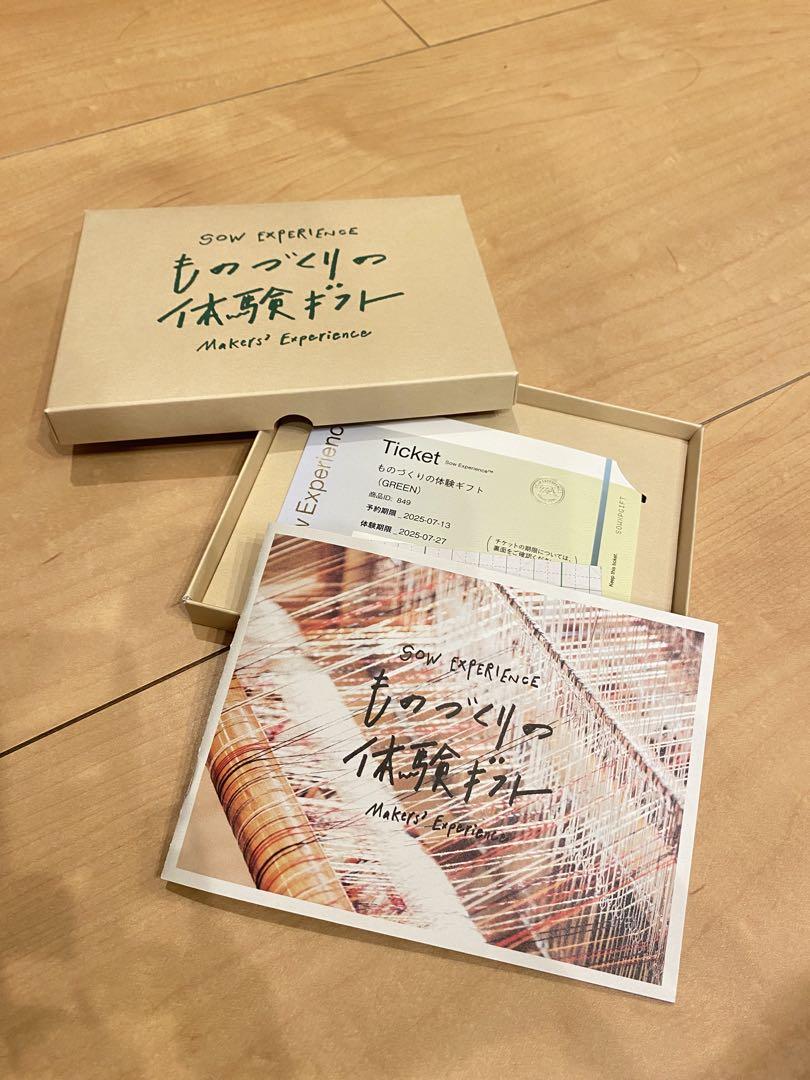 SOW EXPERIENCE
ものづくりの
体験ギフト
Makers' Experience
Sow Experience
Ticket Sow Experience™
ものづくりの体験ギフト
（GREEN）
商品ID: 849
予約期限_2025-07-13
体験期限_2025-07-27
チケットの期限については、
裏面をご確認くだ
SOWXPGIFT
Keep this ticket.
SOW EXPERIENCE
ものづくりの
体験ギフト
Makers' Experience